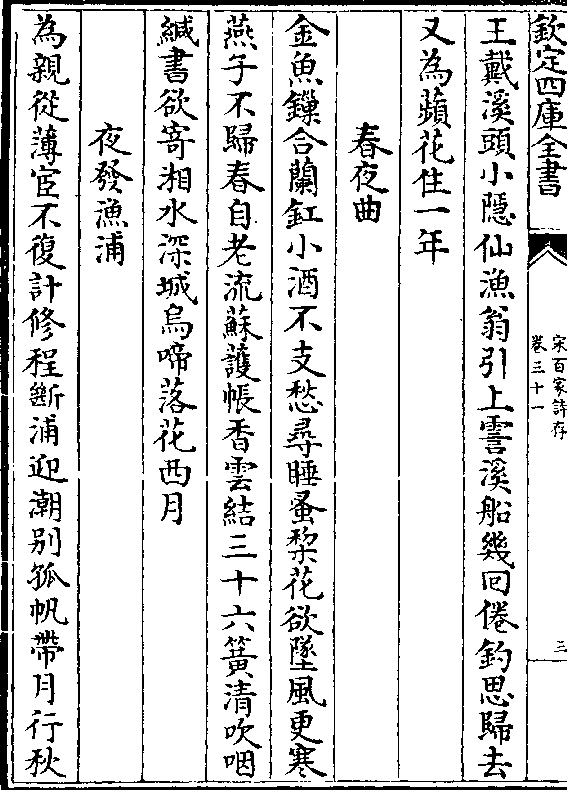 欽定四庫全書
宋百家詩存
卷三十一
三
王戴溪頭小隱仙漁翁引上霅溪船幾回倦釣思歸去
又為蘋花住一年
春夜曲
金魚鏁合蘭釭小酒不支愁尋睡蚤棃花欲墜風更寒
燕子不歸春自老流蘇護帳香雲結三十六簧清吹咽
緘書欲寄湘水深城烏啼落花西月
夜發漁浦
為親從薄宦不復計修程斷浦迎潮别孤帆帶月行秋